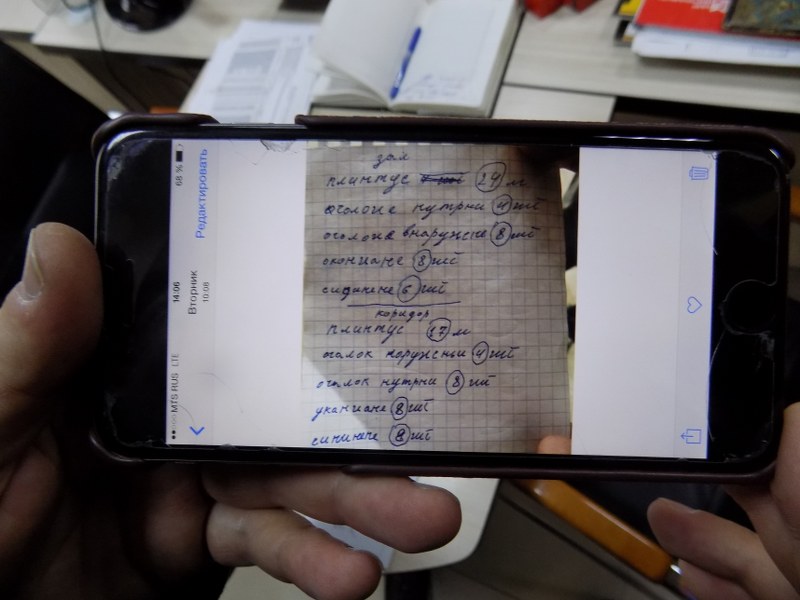 MTS RUS LTE 14:06 68 %
Вторник
10:06
Редактировать
зал
плинтус 24 м
оголоне нутрни 4 шт
оголоне внаружне 8 шт
окончане 8 шт
сидинене 5 шт
коридор
плинтус 17 м
оголок норужнын 4 шт
оголок нутрни 8 шт
укančane 8 шт
синине 8 шт